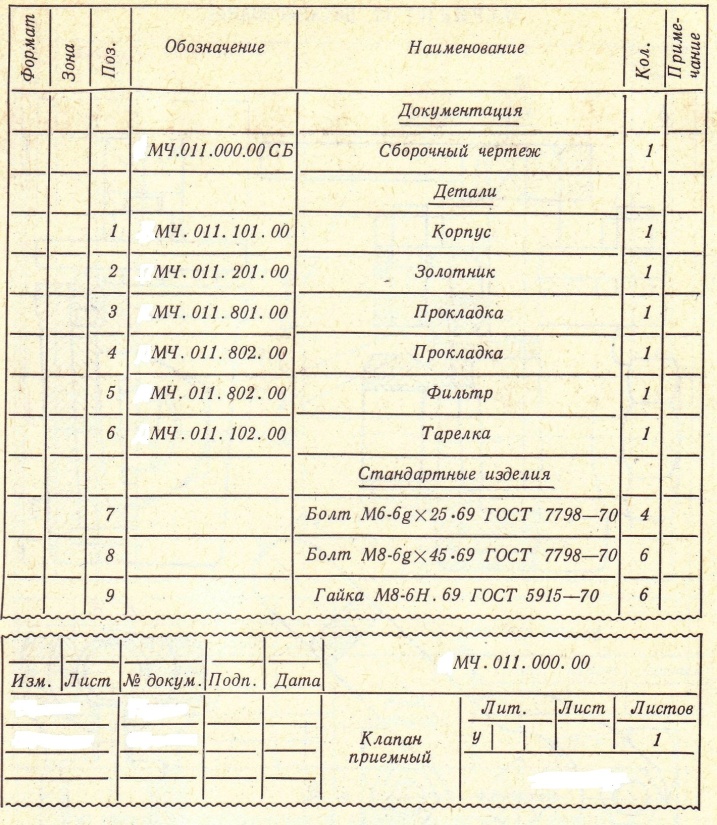 Формат Зона Поз. Обозначение Наименование Кол. Приме-чание
Документация
МЧ.011.000.00 СБ Сборочный чертеж 1
Детали
1 МЧ.011.101.00 Корпус 1
2 МЧ.011.201.00 Золотник 1
3 МЧ.011.801.00 Прокладка 1
4 МЧ.011.802.00 Прокладка 1
5 МЧ.011.802.00 Фильтр 1
6 МЧ.011.102.00 Тарелка 1
Стандартные изделия
7 Болт М6-6g×25.69 ГОСТ 7798—70 4
8 Болт М8-6g×45.69 ГОСТ 7798—70 6
9 Гайка М8-6Н.69 ГОСТ 5915—70 6
МЧ.011.000.00
Изм. Лист № докум. Подп. Дата
Клапан
приемный
Лит. Лист Листов
у 1